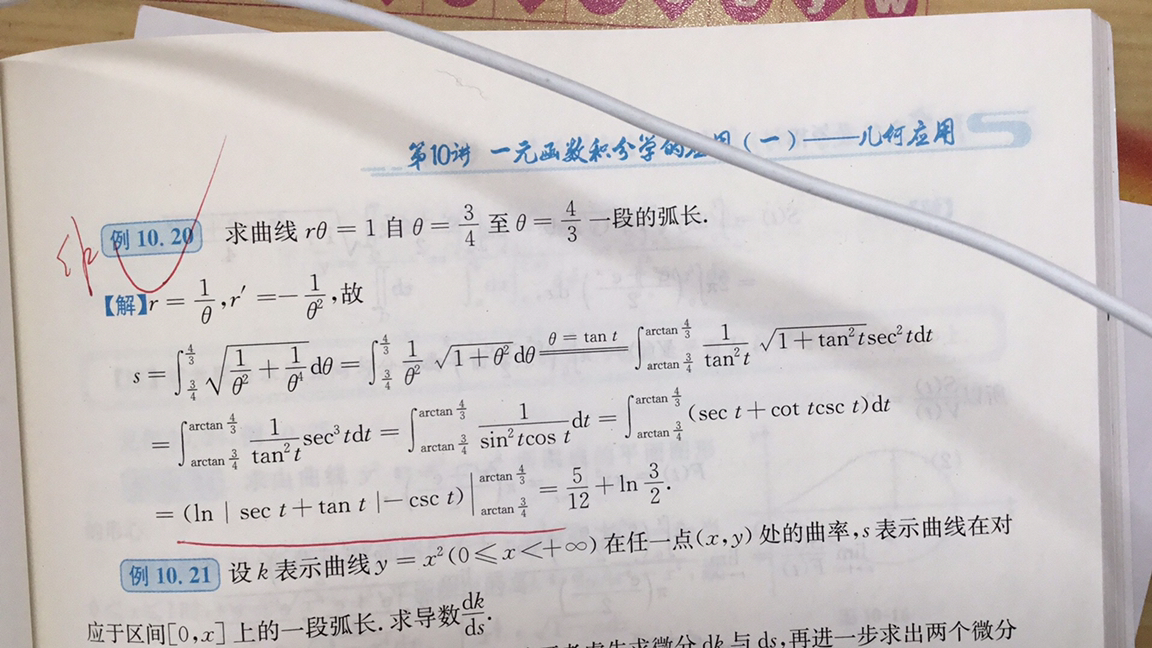 第10讲 一元函数积分学的应用(一)——几何应用
例 10.20 求曲线 rθ = 1 自 θ = 3/4 至 θ = 4/3 一段的弧长.
【解】r = 1/θ, r′ = −1/θ², 故
s = ∫_{3/4}^{4/3} √(1/θ² + 1/θ⁴) dθ = ∫_{3/4}^{4/3} 1/θ² √(1+θ²) dθ ══(θ = tan t)══ ∫_{arctan 3/4}^{arctan 4/3} 1/tan²t √(1+tan²t) sec²tdt
= ∫_{arctan 3/4}^{arctan 4/3} 1/tan²t sec³tdt = ∫_{arctan 3/4}^{arctan 4/3} 1/(sin²tcos t) dt = ∫_{arctan 3/4}^{arctan 4/3} (sec t + cot tcsc t)dt
= (ln | sec t + tan t | − csc t) |_{arctan 3/4}^{arctan 4/3} = 5/12 + ln 3/2.
例 10.21 设 k 表示曲线 y = x²(0 ≤ x < +∞) 在任一点(x,y) 处的曲率, s 表示曲线在对
应于区间[0,x] 上的一段弧长. 求导数 dk/ds.
先求微分 dk 与 ds,再进一步求出两个微分